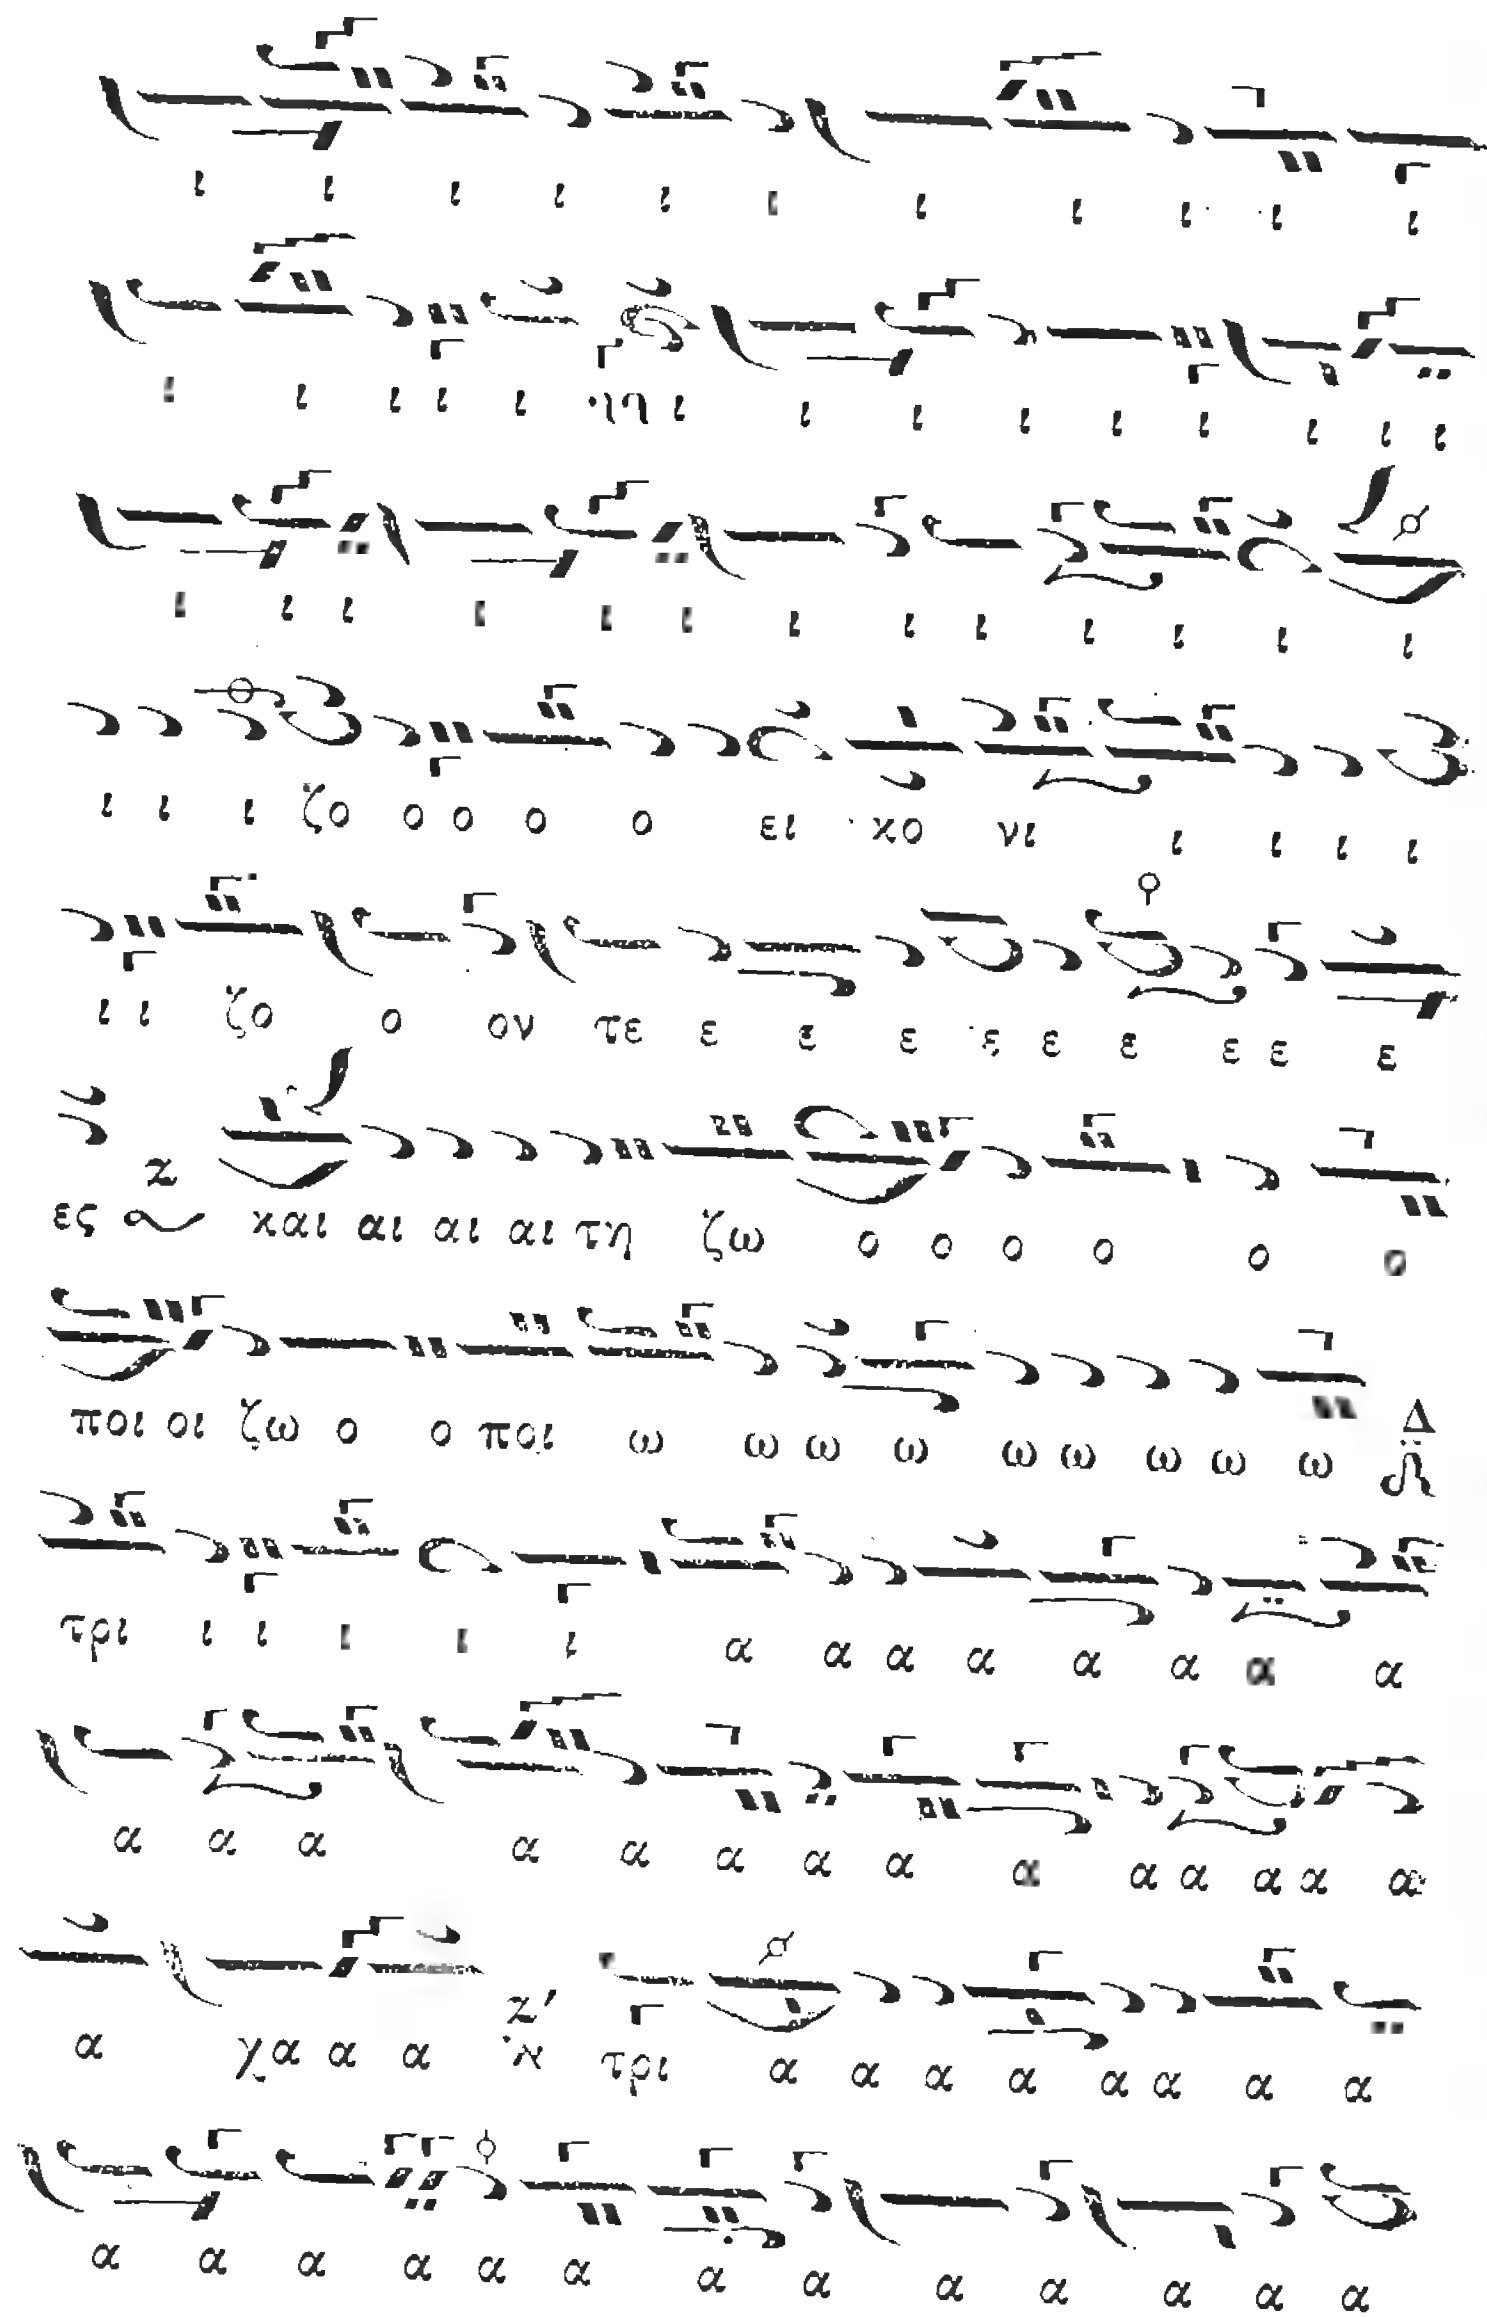 ι ι ι ι ι ι ι ι ι ι ι
ι ι ι ι ι ι ι ι ι ι ι ι ι ι
ι ι ι ι ι ι ι ι ι ι ι ι ι
ι ι ι ζο ο ο ο ο ει κο νι ι ι ι ι
ι ι ζο ο ον τε ε ε ε ε ε ε ε ε ε
ες Ζ και αι αι αι τη ζω ο ο ο ο ο ο
ποι οι ζω ο ο ποι ω ω ω ω ω ω ω ω ω Δ
τρι ι ι ι ι ι α α α α α α α α
α α α α α α α α α α α α α α
α χα α α Ζ′ τρι α α α α α α α α
α α α α α α α α α α α α α